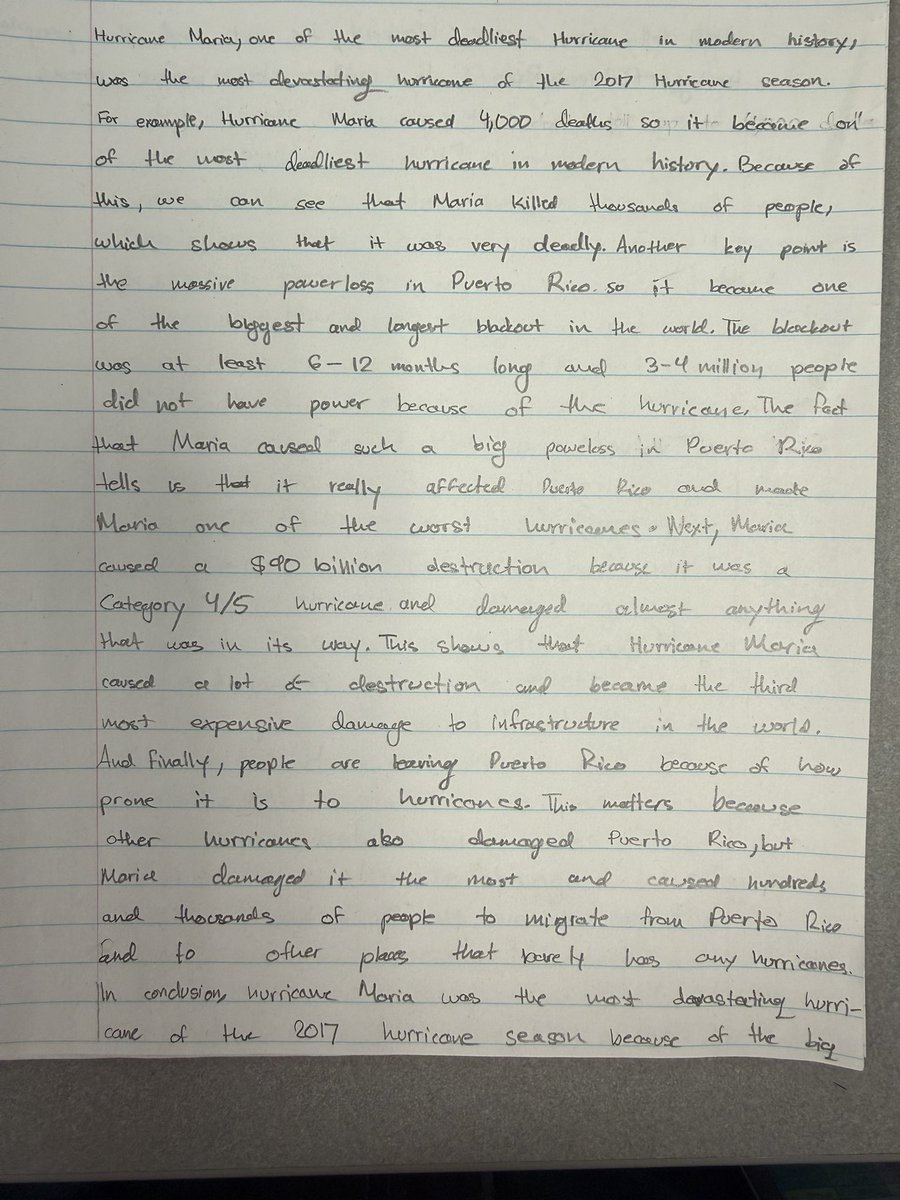 Hurricane Maria, one of the most deadliest Hurricane in modern history,
was the most devastating hurricane of the 2017 Hurricane season.
For example, Hurricane Maria caused 4,000 deaths so it become on
of the most deadliest hurricane in modern history. Because of
this, we can see that Maria killed thousands of people,
which shows that it was very deadly. Another key point is
the massive powerloss in Puerto Rico. so it became one
of the biggest and longest blackout in the world. The blackout
was at least 6-12 months long and 3-4 million people
did not have power because of the hurricane. The fact
that Maria caused such a big poweloss in Puerto Rico
tells us that it really affected Puerto Rico and made
Maria one of the worst hurricanes. Next, Maria
caused a $90 billion destruction because it was a
Category 4/5 hurricane and damaged almost anything
that was in its way. This shows that Hurricane Maria
caused a lot of destruction and became the third
most expensive damage to infrastructure in the world.
And finally, people are leaving Puerto Rico because of how
prone it is to hurricanes. This matters because
other hurricanes also damaged Puerto Rico, but
Maria damaged it the most and caused hundreds
and thousands of people to migrate from Puerto Rico
and to other places that barely has any hurricanes.
In conclusion, hurricane Maria was the most devastating hurri-
cane of the 2017 hurricane season because of the big